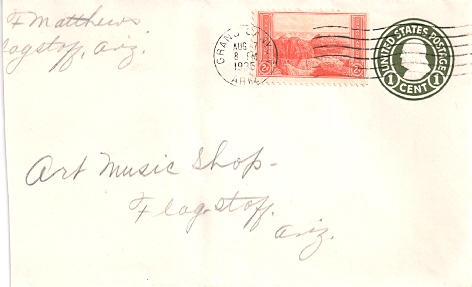 F Matthews
Flagstaff, Ariz.
GRAND CANYON
AUG
8 PM
1935
ARIZ.
UNITED STATES POSTAGE
1 CENT 1
Art Music Shop-
Flagstaff.
Ariz.